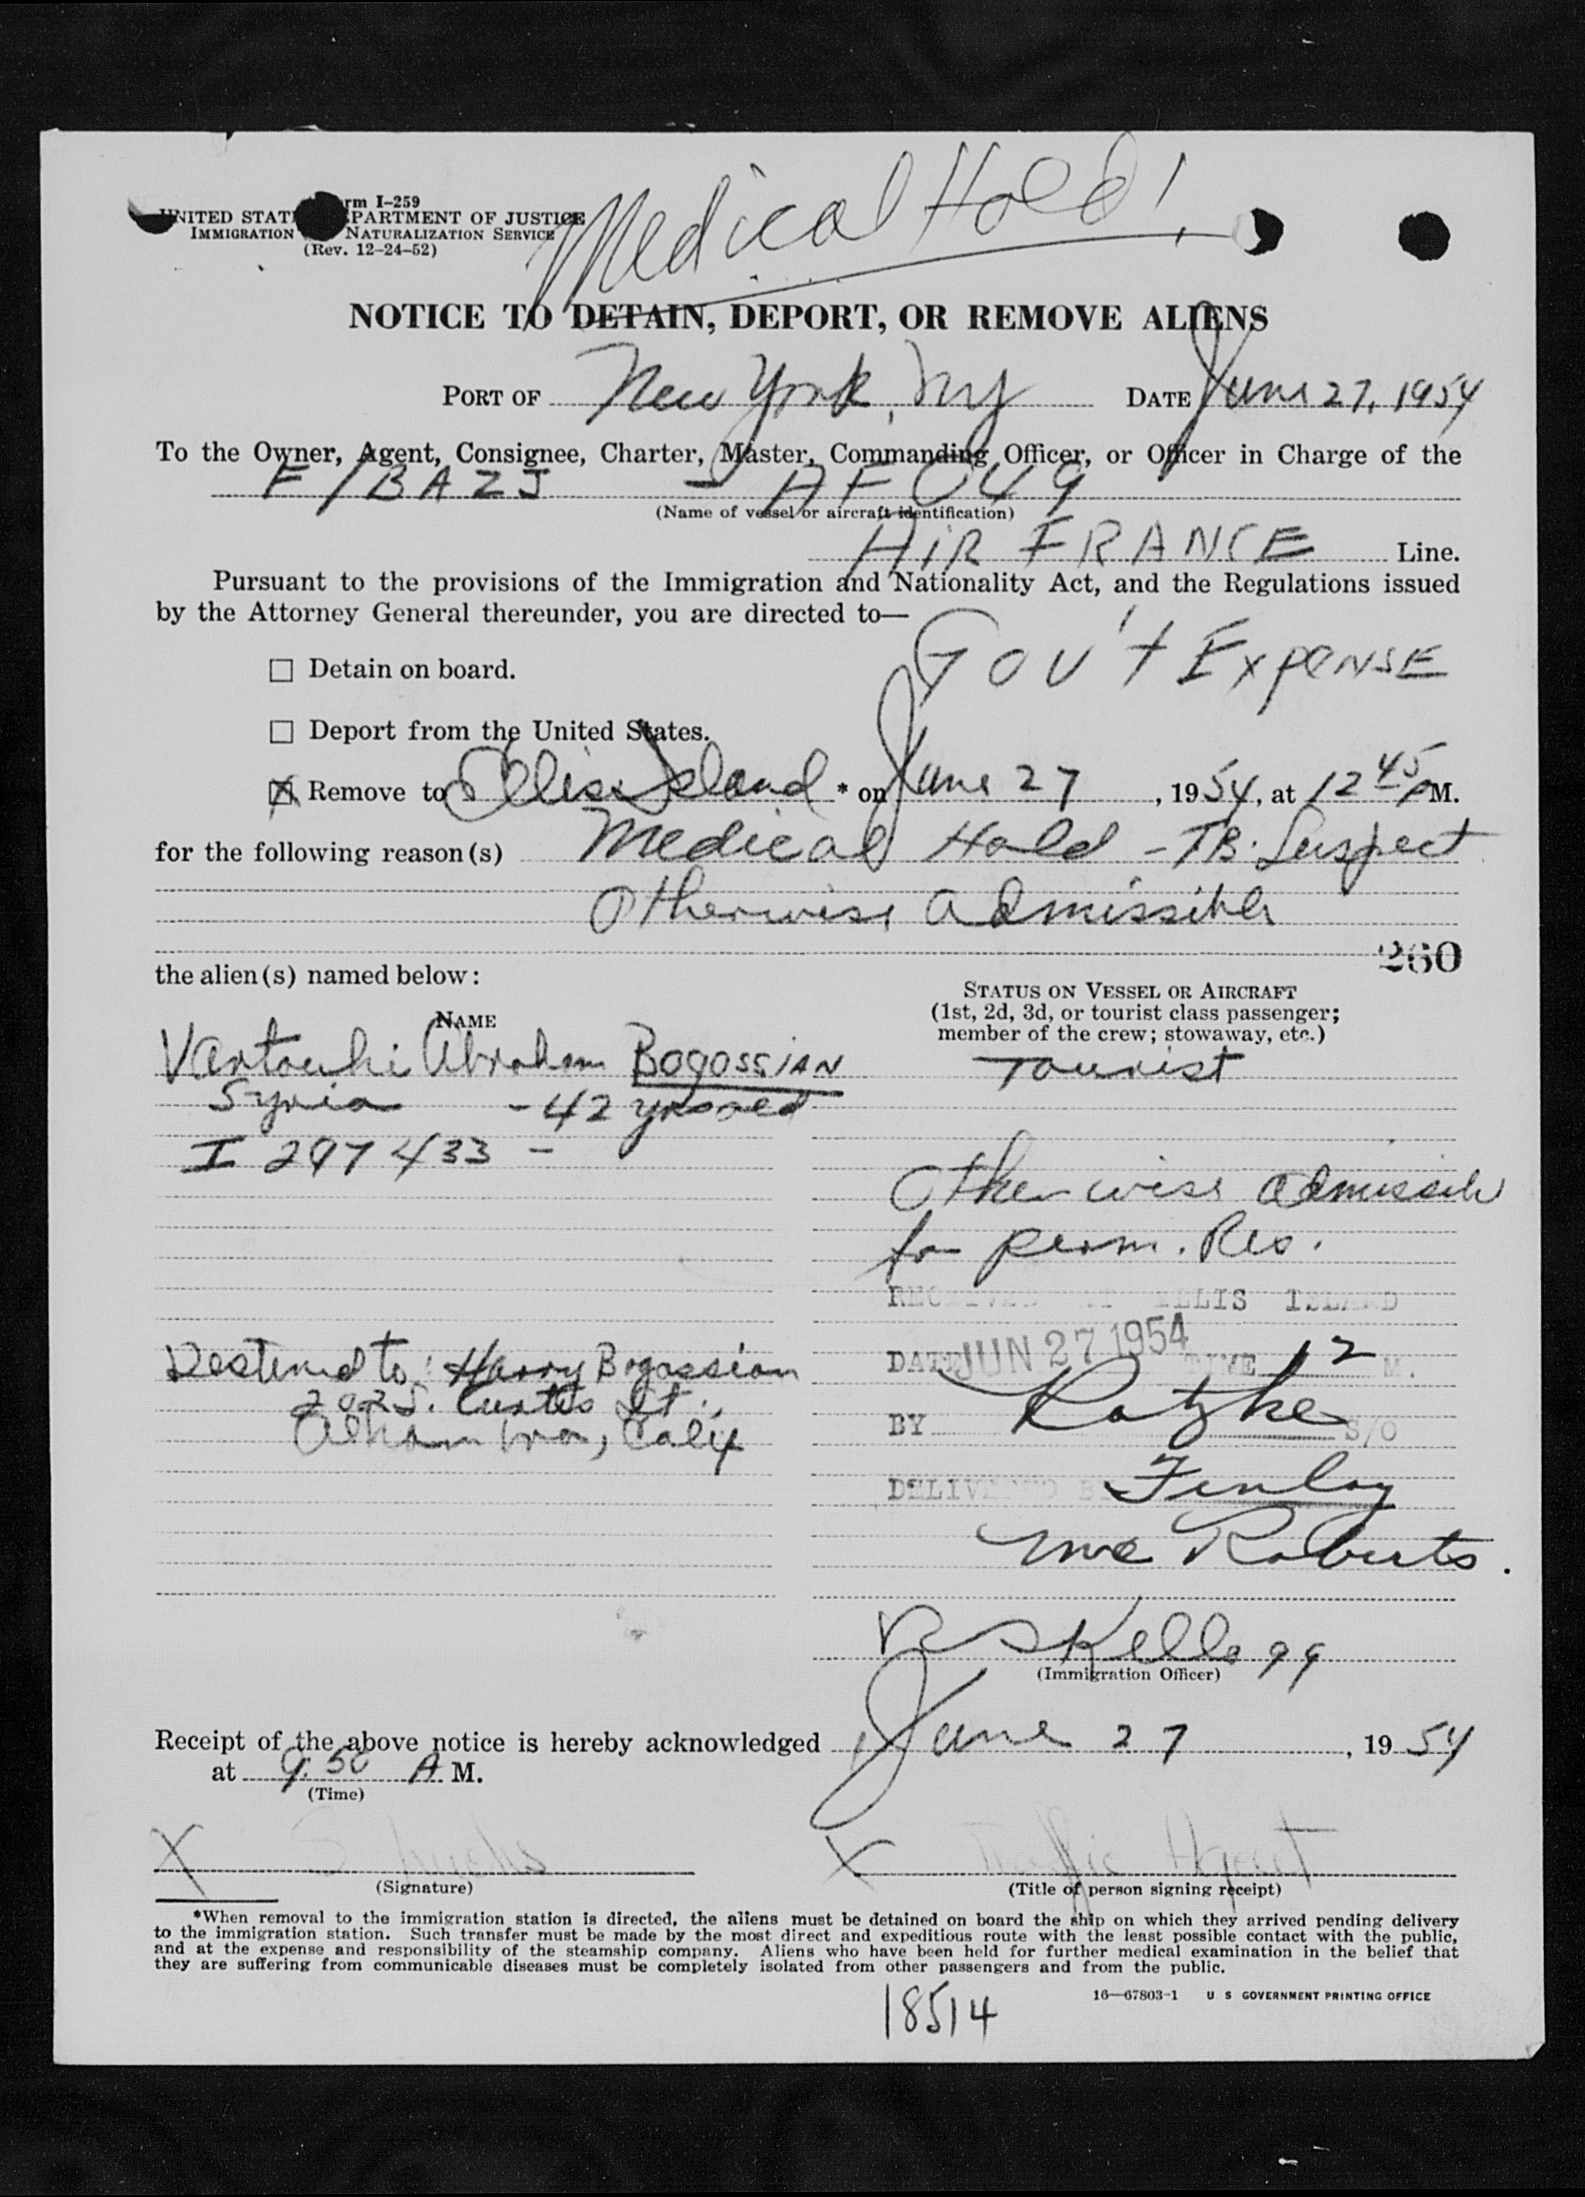 Medical Hold!
Form I-259
UNITED STATES DEPARTMENT OF JUSTICE
IMMIGRATION NATURALIZATION SERVICE
(Rev. 12-24-52)
NOTICE TO DETAIN, DEPORT, OR REMOVE ALIENS
PORT OF New York, NY DATE June 27, 1954
To the Owner, Agent, Consignee, Charter, Master, Commanding Officer, or Officer in Charge of the
F/BAZJ - AF 049
(Name of vessel or aircraft identification)
AIR FRANCE Line.
Pursuant to the provisions of the Immigration and Nationality Act, and the Regulations issued
by the Attorney General thereunder, you are directed to—
GOV'T EXPENSE
☐ Detain on board.
☐ Deport from the United States.
☒ Remove to Ellis Island * on June 27, 1954, at 12 45 P M.
for the following reason(s) Medical Hold - TB. Suspect
Otherwise admissible
260
the alien(s) named below:
NAME
STATUS ON VESSEL OR AIRCRAFT
(1st, 2d, 3d, or tourist class passenger;
member of the crew; stowaway, etc.)
Vartouhi Abraham BOGOSSIAN Tourist
Syria - 42 yrs old
I 297433 -
Otherwise admissible
for perm. Res.
RECEIVED AT ELLIS ISLAND
DATE JUN 27 1954 TIME 12 M.
Destined to: Harry Bogossian
202 S. Curtis St.,
Alhambra, Calif
BY Ratzke S/O
DELIVERED BY Finlay
Roberts.
R S Kellogg
(Immigration Officer)
Receipt of the above notice is hereby acknowledged June 27, 1954
at 9:50 A M.
(Time)
X
X Traffic Agent
(Signature)
(Title of person signing receipt)
*When removal to the immigration station is directed, the aliens must be detained on board the ship on which they arrived pending delivery
to the immigration station. Such transfer must be made by the most direct and expeditious route with the least possible contact with the public,
and at the expense and responsibility of the steamship company. Aliens who have been held for further medical examination in the belief that
they are suffering from communicable diseases must be completely isolated from other passengers and from the public.
16—67803-1 U S GOVERNMENT PRINTING OFFICE
18514